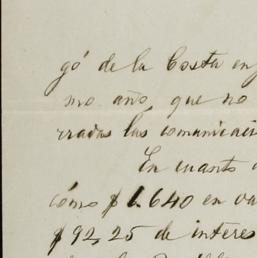 gó de la Costa en
mo año, que no
rradas las comunicaci
En cuanto
cómo $ 1.640 en va
$ 92,25 de interes